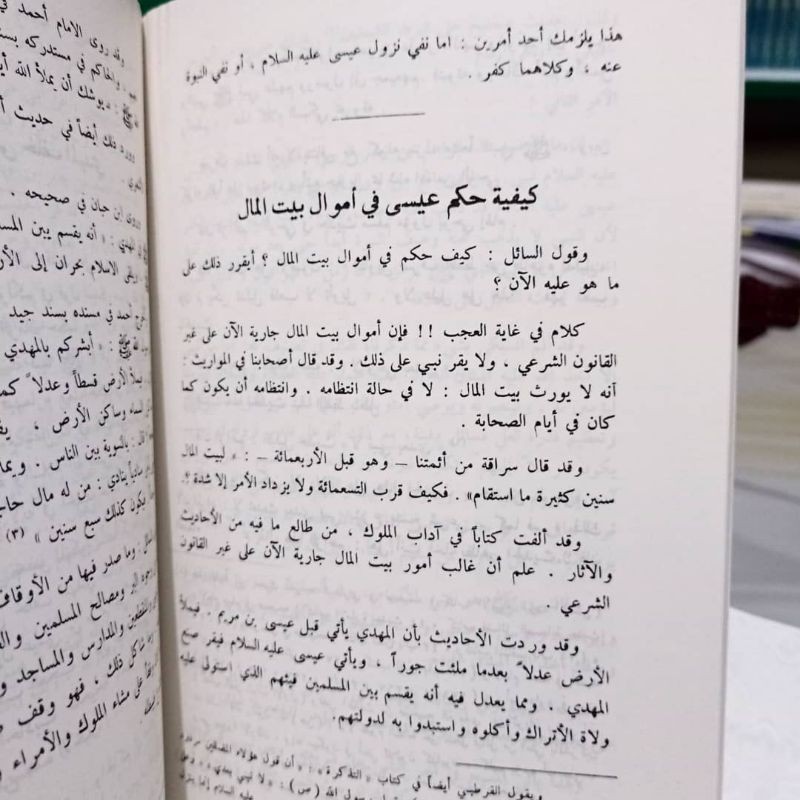 هذا يلزمك أحد أمرين : اما نفي نزول عيسى عليه السلام ، أو نفي النبوة
عنه ، وكلاهما كفر .
كيفية حكم عيسى في أموال بيت المال
وقول السائل : كيف حكم في أموال بيت المال ؟ أيقرر ذلك على
ما هو عليه الآن ؟
كلام في غاية العجب !! فإن أموال بيت المال جارية الآن على غير
القانون الشرعي ، ولا يقر نبي على ذلك . وقد قال أصحابنا في المواريث :
أنه لا يورث بيت المال : لا في حالة انتظامه . وانتظامه أن يكون كما
كان في أيام الصحابة .
وقد قال سراقة من أئمتنا – وهو قبل الأربعمائة – : « لبيت المال
سنين كثيرة ما استقام» . فكيف قرب التسعمائة ولا يزداد الأمر إلا شدة ؟.
وقد ألفت كتاباً في آداب الملوك ، من طالع ما فيه من الأحاديث
والآثار . علم أن غالب أمور بيت المال جارية الآن على غير القانون
الشرعي .
وقد وردت الأحاديث بأن المهدي يأتي قبل عيسى بن مريم . فيملأ
الأرض عدلاً بعدما ملئت جوراً ، ويأتي عيسى عليه السلام فيقر صنع
المهدي . ومما يعدل فيه أنه يقسم بين المسلمين فيئهم الذي استولى عليه
ولاة الأتراك وأكلوه واستبدوا به لدولتهم.
ويقول القرطبي أيضاً في كتاب « التذكرة » : « أن قول هؤلاء
رسول الله (ص) : « لا نبي بعدي »
عليه السلام إنما ينزل
وقد روى الامام أحمد في
والحاكم في مستدركه بسند
يوشك أن يملأ الله
ذلك أيضاً في حديث
ابن حبان في صحيحه .
المهدي : « أنه يقسم بين
الاسلام بجران إلى
أحمد في مسنده بسند جيد
ﷺ : « أبشركم بالمهدي
الأرض قسطاً وعدلاً كما
السماء وساكن الأرض ،
قال : بالسوية بين الناس .
ينادي : من له مال
يكون كذلك سبع سنين » (٣)
وما صدر فيها من الأوقاف
ومصالح المسلمين
والمدارس والمساجد
ذلك ، فهو وقف
الملوك والأمراء